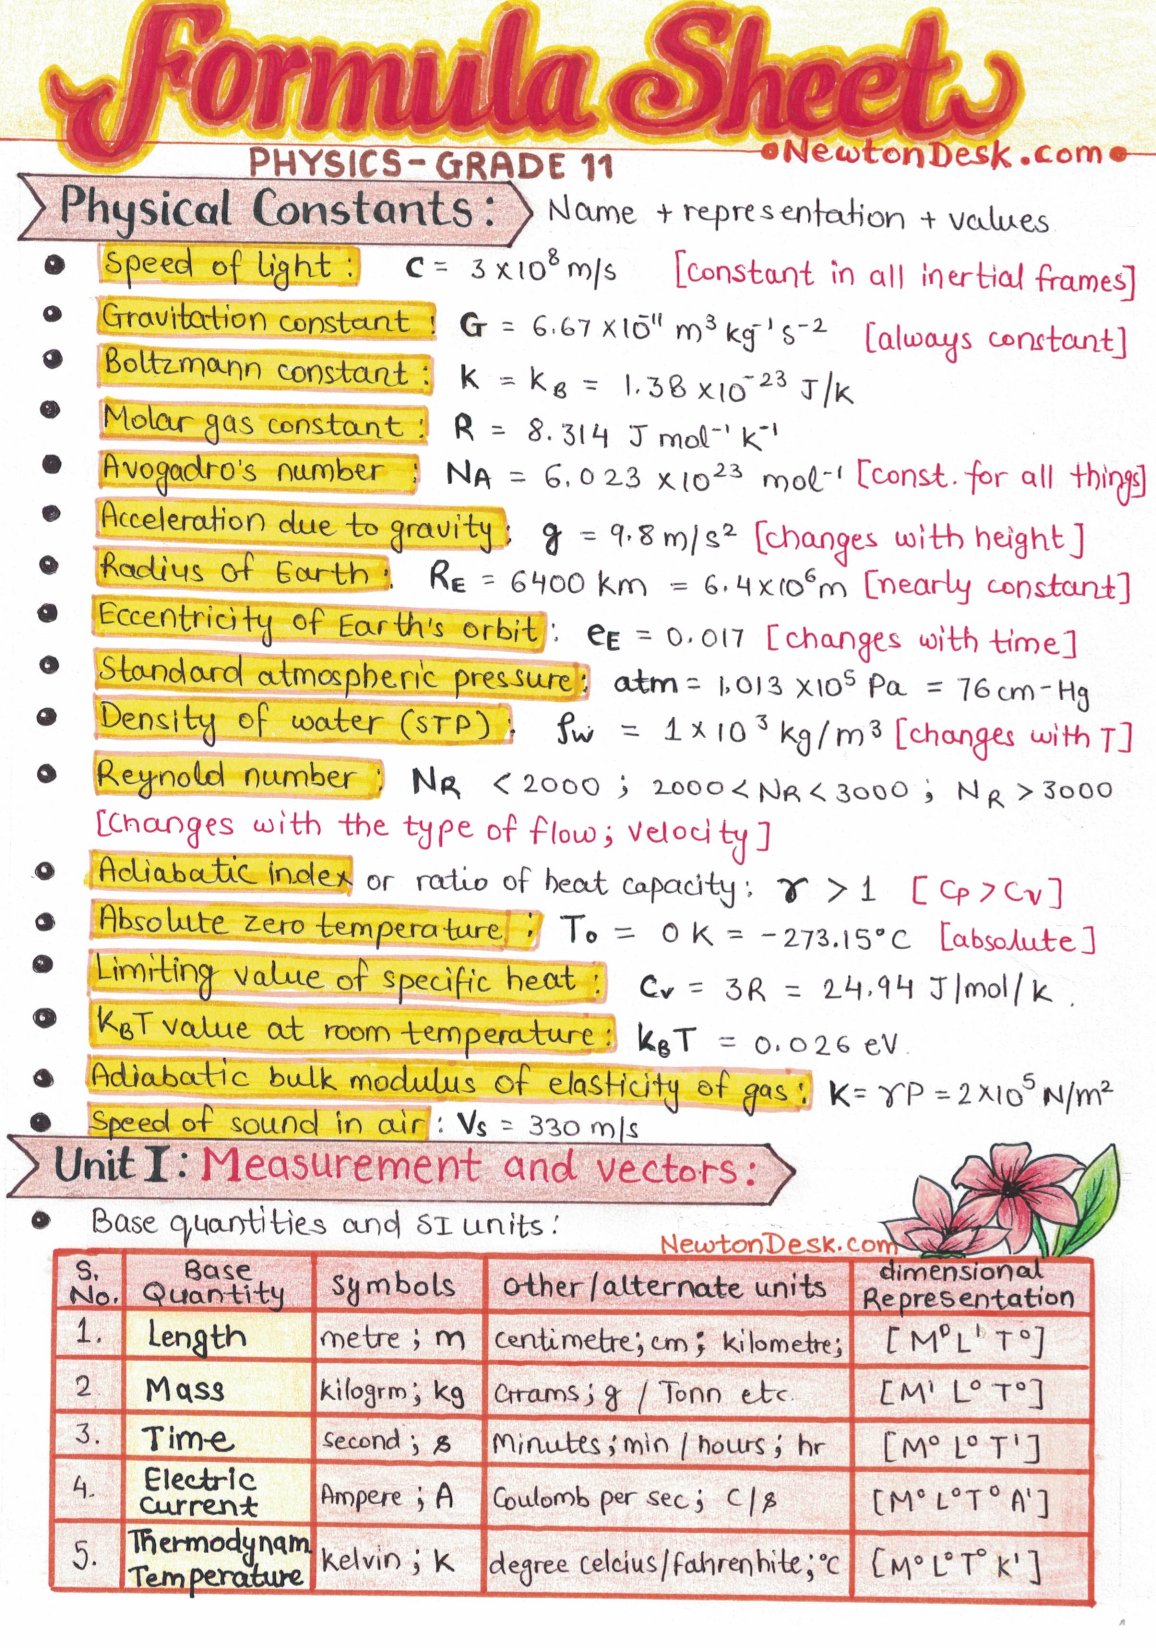 Formula Sheet
PHYSICS-GRADE 11
NewtonDesk.com
Physical Constants: Name + representation + values
Speed of light: c = 3 x 10⁸ m/s [constant in all inertial frames]
Gravitation constant: G = 6.67 x 10⁻¹¹ m³ kg⁻¹ s⁻² [always constant]
Boltzmann constant: K = kB = 1.38 x 10⁻²³ J/K
Molar gas constant: R = 8.314 J mol⁻¹ K⁻¹
Avogadro's number: NA = 6.023 x 10²³ mol⁻¹ [const. for all things]
Acceleration due to gravity: g = 9.8 m/s² [changes with height]
Radius of Earth: RE = 6400 km = 6.4 x 10⁶ m [nearly constant]
Eccentricity of Earth's orbit: eE = 0.017 [changes with time]
Standard atmospheric pressure: atm = 1.013 x 10⁵ Pa = 76 cm-Hg
Density of water (STP): ρw = 1 x 10³ kg/m³ [changes with T]
Reynold number: NR < 2000 ; 2000 < NR < 3000 ; NR > 3000
[Changes with the type of flow; velocity]
Adiabatic index or ratio of heat capacity: γ > 1 [Cp > Cv]
Absolute zero temperature: To = 0 K = -273.15°C [absolute]
Limiting value of specific heat: Cv = 3R = 24.94 J/mol/K.
KBT value at room temperature: kBT = 0.026 eV.
Adiabatic bulk modulus of elasticity of gas: K = γP = 2 x 10⁵ N/m²
Speed of sound in air: Vs = 330 m/s
Unit I: Measurement and vectors:
Base quantities and SI units:
NewtonDesk.com
S. No. Base Quantity symbols other/alternate units dimensional Representation
1. Length metre ; m centimetre; cm ; kilometre; [M⁰ L¹ T⁰]
2 Mass kilogrm; kg Grams; g / Tonn etc. [M¹ L⁰ T⁰]
3. Time second ; s Minutes; min / hours ; hr [M⁰ L⁰ T¹]
4. Electric current Ampere ; A Coulomb per sec; C/s [M⁰ L⁰ T⁰ A¹]
5. Thermodynam Temperature kelvin ; K degree celcius/fahrenhite; °C [M⁰ L⁰ T⁰ K¹]